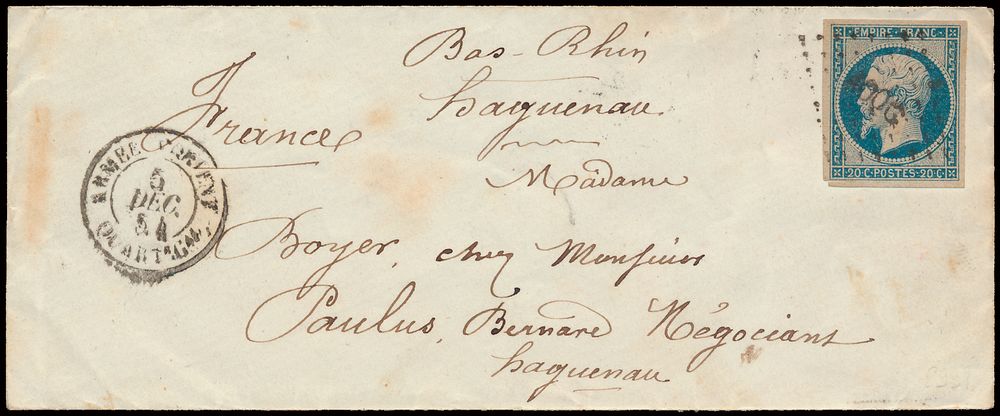 Bas-Rhin
haguenau
France
Madame
Boyer, chez Monsieur
Paulus, Bernard Négociant
haguenau
EMPIRE FRANC
20·C·POSTES·20·C
ARMEE D'ORIENT
5
DEC.
54
QUART. GAL